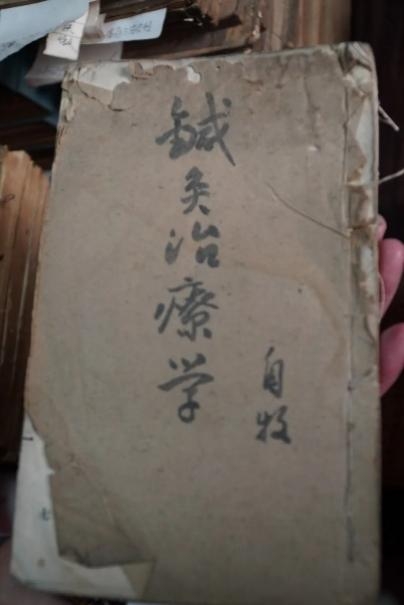 鍼灸治療学
自牧
七